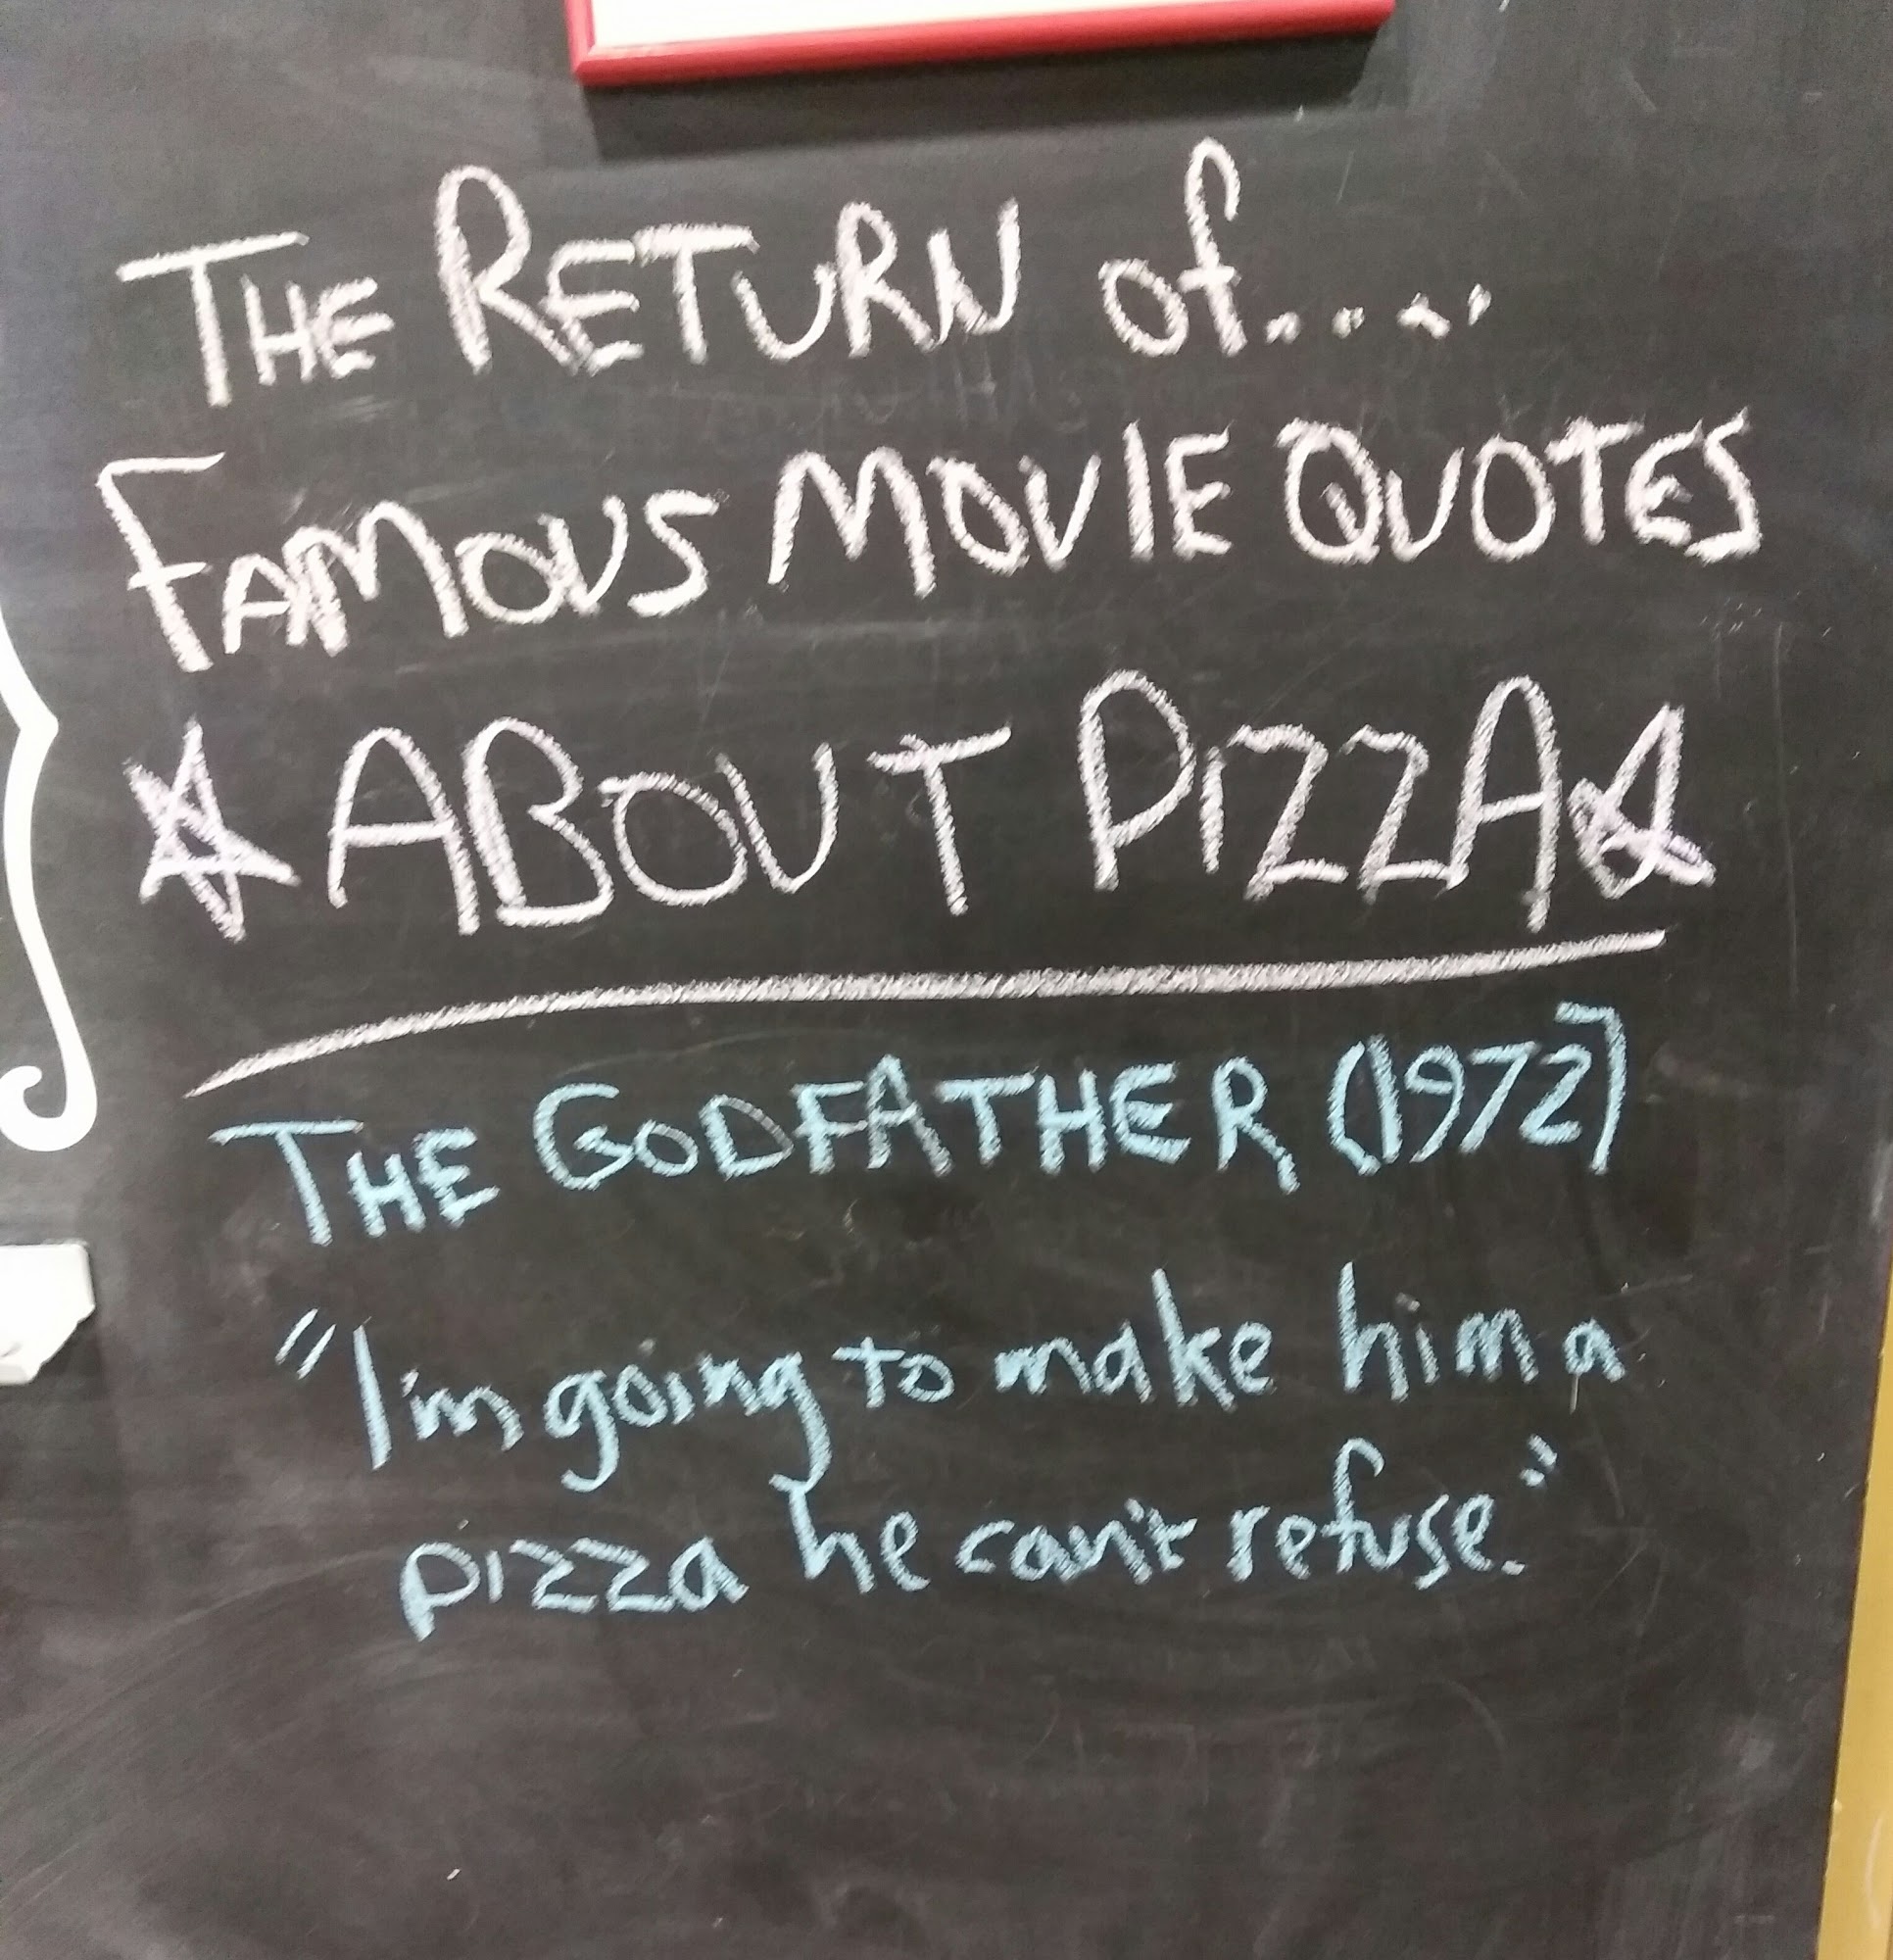 THE RETURN of....
FAMOUS MOVIE QUOTES
ABOUT PIZZA
THE GODFATHER (1972)
"I'm going to make him a
pizza he can't refuse."